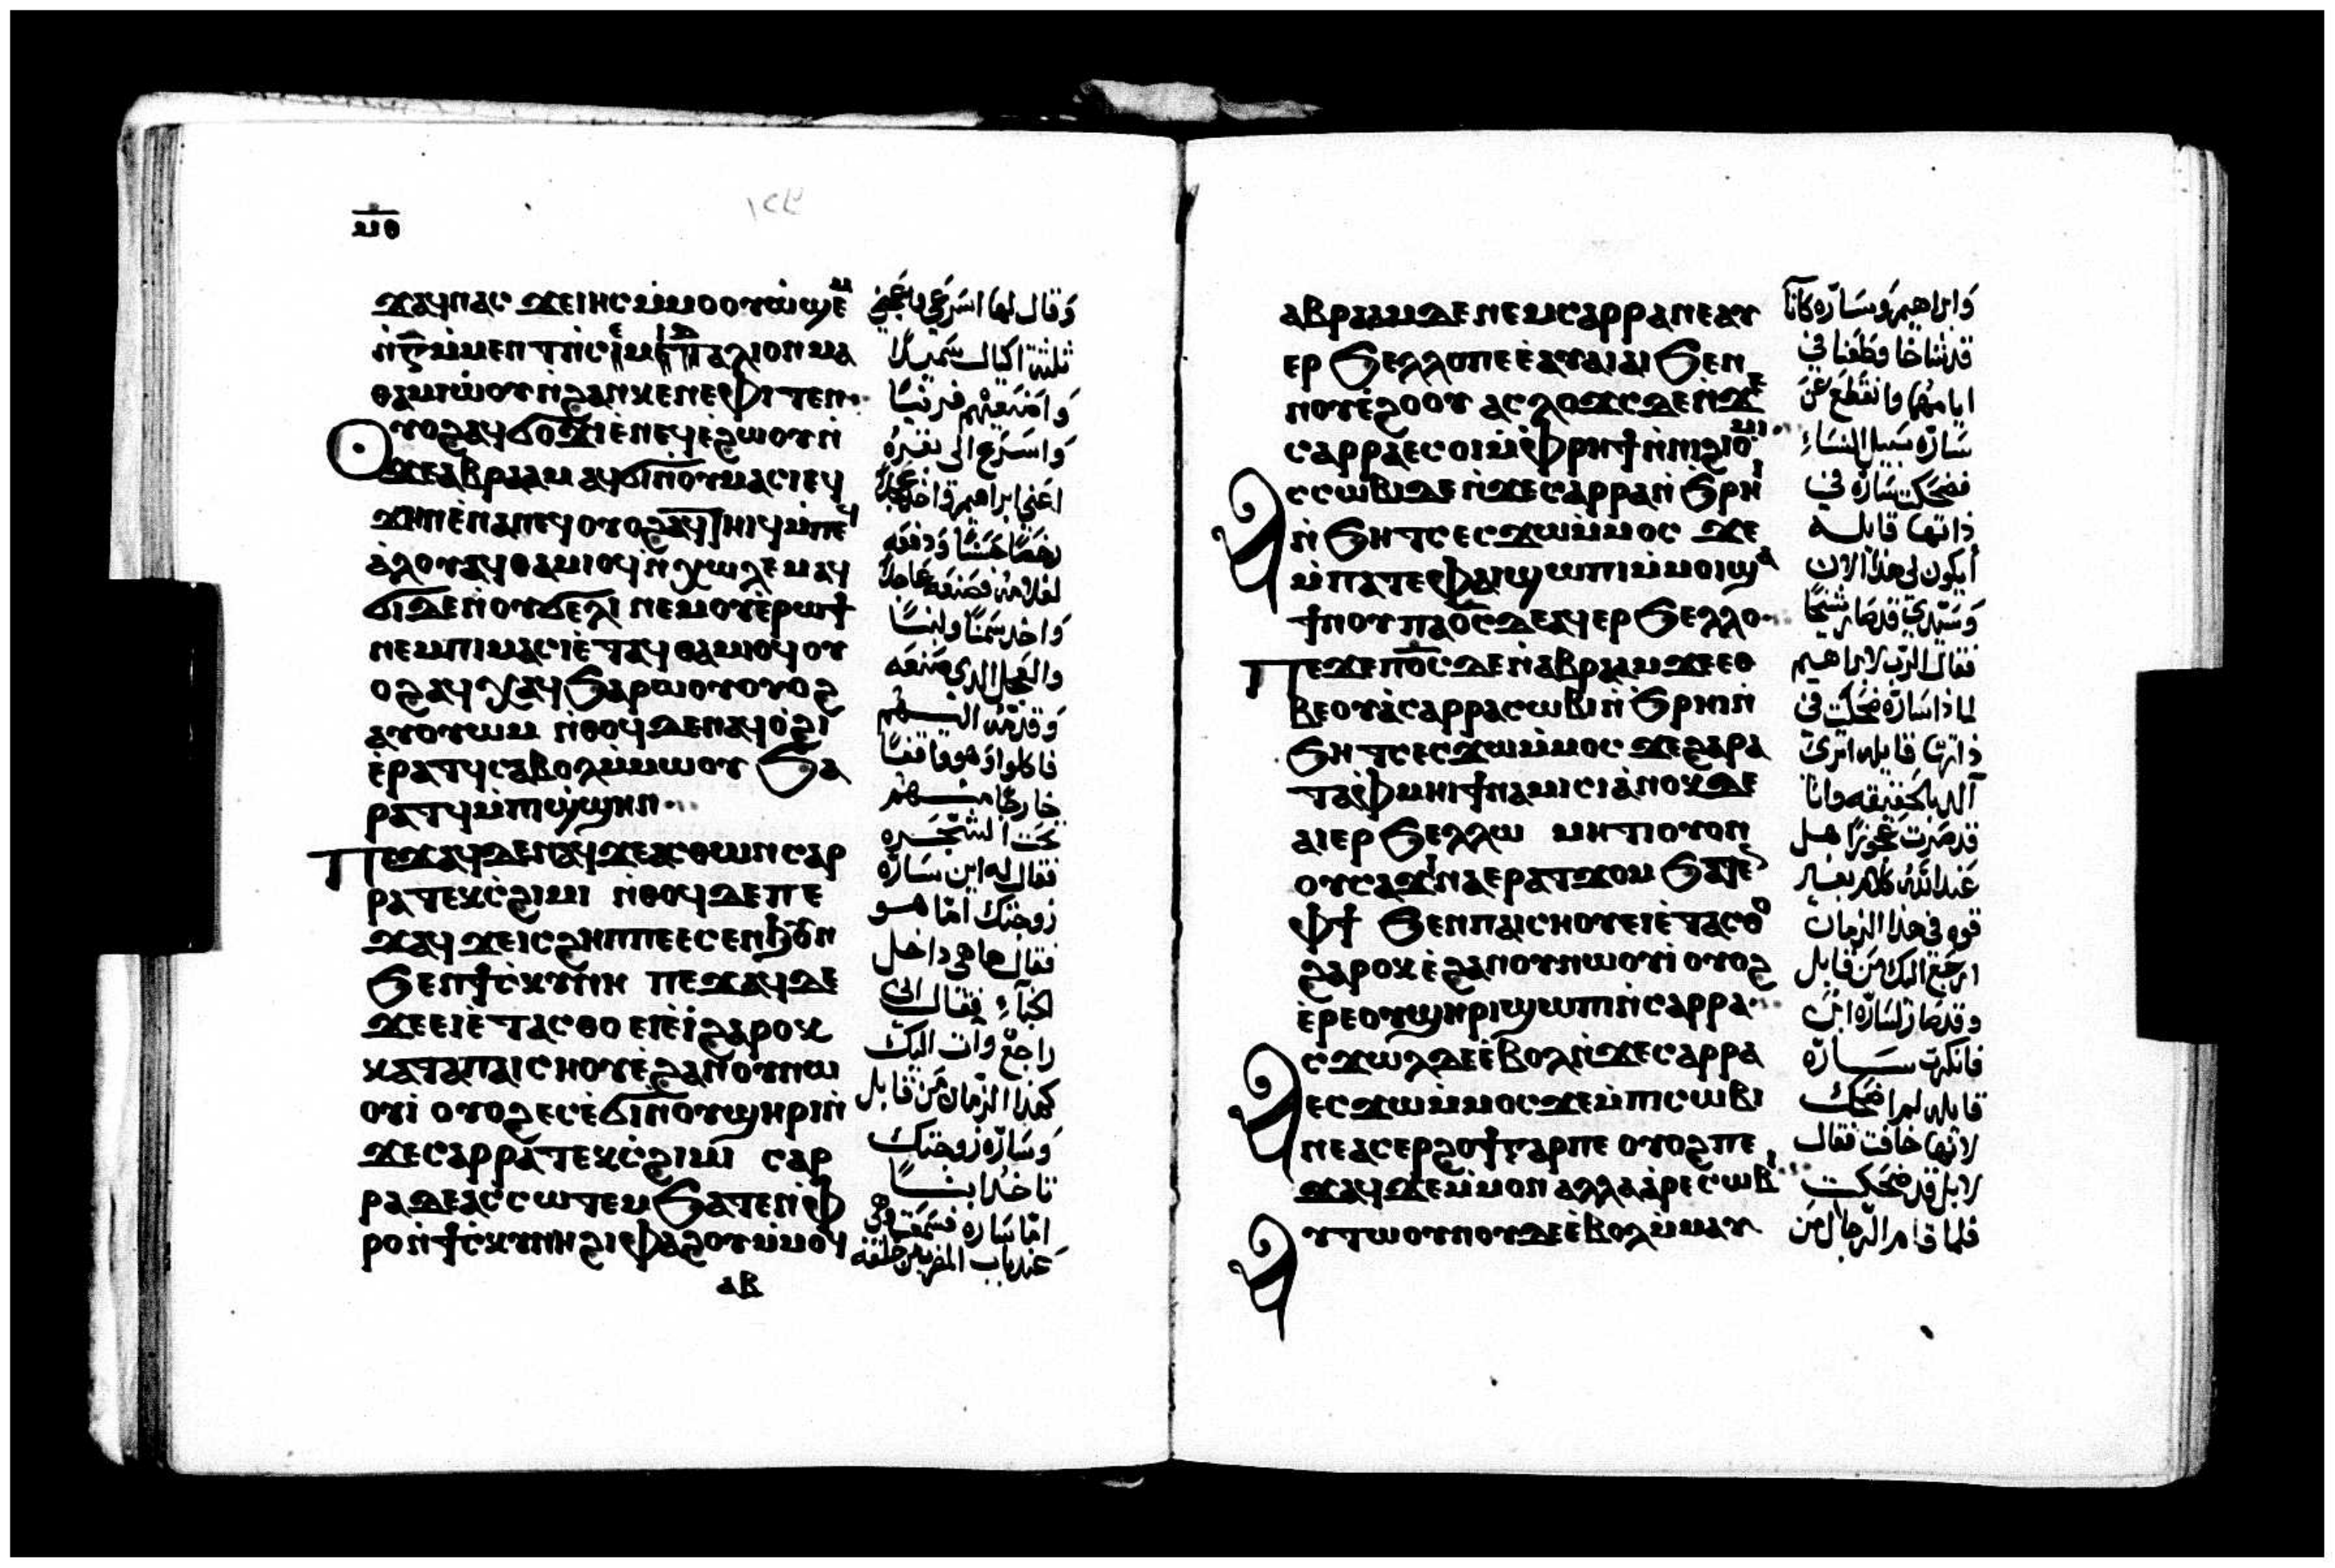 ⲙⲑ
ϫⲁϥⲛⲁⲥ ϫⲉⲓⲏⲥ ⲙ̀ⲙⲟ ⲟⲩⲱ̀ϣⲉⲙ
ⲑⲁⲙⲓⲱⲟⲩ ⲛ̀ϩⲁⲛⲕⲉⲛⲉⲫⲓⲧⲉⲛ
ⲟⲩⲟϩ ⲁϥϭⲟϫⲓ ⲉ̀ⲛⲉϥⲉ̀ϩⲱⲟⲩ ⲛ̀
ϫⲉ ⲁⲃⲣⲁⲁⲙ ⲁϥϭⲓ ⲛ̀ⲟⲩⲙⲁⲥⲓ ⲉϥ
ⲁ̀ⲗⲟⲩ ⲁϥⲑⲁⲙⲓⲟϥ ⲛ̀ⲭⲱⲗⲉⲙ ⲁϥ
ϭⲓ ⲇⲉ ⲛ̀ⲟⲩϭⲉⲗⲓ ⲛⲉⲙ ⲟⲩⲉ̀ⲣⲱϯ
ⲛⲉⲙ ⲡⲓⲙⲁⲥⲓ ⲉ̀ⲧⲁϥⲑⲁⲙⲓⲟϥ ⲟⲩ
ⲟϩ ⲁϥⲭⲁϥ ϧⲁⲣⲱⲟⲩ ⲟⲩⲟϩ
ⲁⲩⲟⲩⲱⲙ ⲛ̀ⲑⲟϥ ⲇⲉ ⲛⲁϥⲟ̀ϩⲓ
ⲉ̀ⲣⲁⲧϥ ⲥⲁⲃⲟⲗ ⲙ̀ⲙⲱⲟⲩ ϧⲁ
ⲣⲁⲧϥ ⲙ̀ⲡⲓϣ̀ϣⲏⲛ
ⲡⲉϫⲁϥ ⲇⲉ ⲛⲁϥ ϫⲉ ⲁⲥⲑⲱⲛ ⲥⲁⲣ
ⲣⲁ ⲧⲉⲕⲥ̀ϩⲓⲙⲓ ⲛ̀ⲑⲟϥ ⲇⲉ ⲡⲉ
ϫⲁϥ ϫⲉ ⲓⲥ ϩⲏⲡⲡⲉ ⲉⲥⲉⲛϧⲟⲩⲛ
ϧⲉⲛ ϯⲥ̀ⲕⲩⲛⲏ ⲡⲉϫⲁϥ ⲇⲉ
ϫⲉ ⲉⲓⲉ̀ⲧⲁⲥⲑⲟ ⲉⲓⲉ̀ⲓ̀ ϩⲁⲣⲟⲕ
ⲕⲁⲧⲁ ⲡⲁⲓⲥⲏⲟⲩ ⲉ̀ϩⲁⲛⲟⲩⲛⲱ
ⲟⲩⲓ̀ ⲟⲩⲟϩ ⲉⲥⲉ̀ϭⲓ ⲛ̀ⲟⲩϣⲏⲣⲓ ⲛ̀
ϫⲉ ⲥⲁⲣⲣⲁ ⲧⲉⲕⲥ̀ϩⲓⲙⲓ ⲥⲁⲣ
ⲣⲁ ⲇⲉ ⲁⲥⲥⲱⲧⲉⲙ ϧⲁⲧⲉⲛ ⲫ̀
ⲣⲟ ⲛ̀ϯⲥ̀ⲕⲩⲛⲏ ϩⲓⲫⲁϩⲟⲩ ⲙ̀ⲙⲟϥ
ⲁⲃ
ثلثة اكيال سميدًا
واسرع الى بقره
واخد سمنًا ولبنًا
والعجل الدى صنعه
وقدمه اليهم
فاكلوا وهو واقفًا
خارجًا منهم
تحت الشجره
فقال له اين سارّه
زوجتك امّا هو
فقال ها هى داخل
الخبآء فقال انى
راجع وات اليك
كهذا الزمان من قابل
وسارّه زوجتك
تاخد ابنًا
ⲁⲃⲣⲁⲁⲙ ⲇⲉ ⲛⲉⲙ ⲥⲁⲣⲣⲁ ⲛⲉⲁⲩ
ⲉⲣϧⲉⲗⲗⲟ ⲡⲉ ⲉ̀ⲁⲩⲁⲓⲁⲓ ϧⲉⲛ
ⲛⲟⲩⲉ̀ϩⲟⲟⲩ ⲁⲥⲗⲟϫⲥ ⲇⲉ ⲛ̀ϫⲉ
ⲥⲁⲣⲣⲁ ⲉⲥⲟⲓ ⲙ̀ⲫ̀ⲣⲏϯ ⲛ̀ⲛⲓϩⲓⲟⲙⲓ
ⲁⲥⲥⲱⲃⲓ ⲇⲉ ⲛ̀ϫⲉ ⲥⲁⲣⲣⲁ ⲛ̀ϧⲣⲏⲓ
ⲛ̀ϧⲏⲧⲥ ⲉⲥϫⲱ ⲙ̀ⲙⲟⲥ ϫⲉ
ⲙ̀ⲡⲁⲧⲉ ⲫⲁⲓ ϣⲱⲡⲓ ⲙ̀ⲙⲟⲓ ϣⲁ
ϯⲛⲟⲩ ⲡⲁⲟ̅ⲥ̅ ⲇⲉ ⲁϥⲉⲣϧⲉⲗⲗⲟ
ⲡⲉϫⲉ ⲡⲟ̅ⲥ̅ ⲇⲉ ⲛ̀ⲁⲃⲣⲁⲁⲙ ϫⲉ ⲉⲑ
ⲃⲉ ⲟⲩ ⲁ̀ ⲥⲁⲣⲣⲁ ⲥⲱⲃⲓ ⲛ̀ϧⲣⲏⲓ ⲛ̀
ϧⲏⲧⲥ ⲉⲥϫⲱ ⲙ̀ⲙⲟⲥ ϫⲉ ϩⲁⲣⲁ
ⲧⲁⲫⲙⲏⲓ ϯⲛⲁⲙⲓⲥⲓ ⲁ̀ⲛⲟⲕ ⲇⲉ
ⲁⲓⲉⲣϧⲉⲗⲗⲱ ⲙⲏⲧⲓ ⲟⲩⲟⲛ
ⲟⲩⲥⲁϫⲓ ⲛⲁⲉⲣⲁⲧϫⲟⲙ ϧⲁⲧⲉⲛ
ⲫϯ ϧⲉⲛ ⲡⲁⲓⲥⲏⲟⲩ ⲉⲓⲉ̀ⲧⲁⲥⲑⲟ
ϩⲁⲣⲟⲕ ⲉ̀ϩⲁⲛⲟⲩⲛⲱⲟⲩⲓ̀ ⲟⲩⲟϩ
ⲉ̀ⲣⲉ ⲟⲩϣⲏⲣⲓ ϣⲱⲡⲓ ⲛ̀ⲥⲁⲣⲣⲁ
ⲁⲥϫⲱⲗ ⲇⲉ ⲉ̀ⲃⲟⲗ ⲛ̀ϫⲉ ⲥⲁⲣⲣⲁ
ⲉⲥϫⲱ ⲙ̀ⲙⲟⲥ ϫⲉ ⲙ̀ⲡⲓⲥⲱⲃⲓ
ⲛⲉⲁⲥⲉⲣϩⲟϯ ⲅⲁⲣ ⲡⲉ ⲟⲩⲟϩ ⲡⲉ
ϫⲁϥ ϫⲉ ⲙ̀ⲙⲟⲛ ⲁⲗⲗⲁ ⲁ̀ⲣⲉⲥⲱⲃⲓ
ⲁⲩⲧⲱⲟⲩⲛⲟⲩ ⲇⲉ ⲉ̀ⲃⲟⲗ ⲙ̀ⲙⲁⲩ
وابراهيم وساره كانا
قد شاخا وطعنا فى
ايامهما وانقطع عن
سارّه سبيل النساء
فضحكت سارّه فى
ذاتها قايله
أيكون لى هذا الان
وسيّدى قد صار شيخًا
فقال الرب لابراهيم
لماذا سارّه ضحكت فى
ذاتها قايله اترى
ألد بالحقيقه وانا
قد صرت عجوزًا هل
قوه فى هذا الزمان
ارجع اليك من قابل
وقد صار لسارّه ابن
فانكرت سارّه
قايله لم اضحك
لانها خافت فقال
لا بل قد ضحكت
فلما قام الرجال من